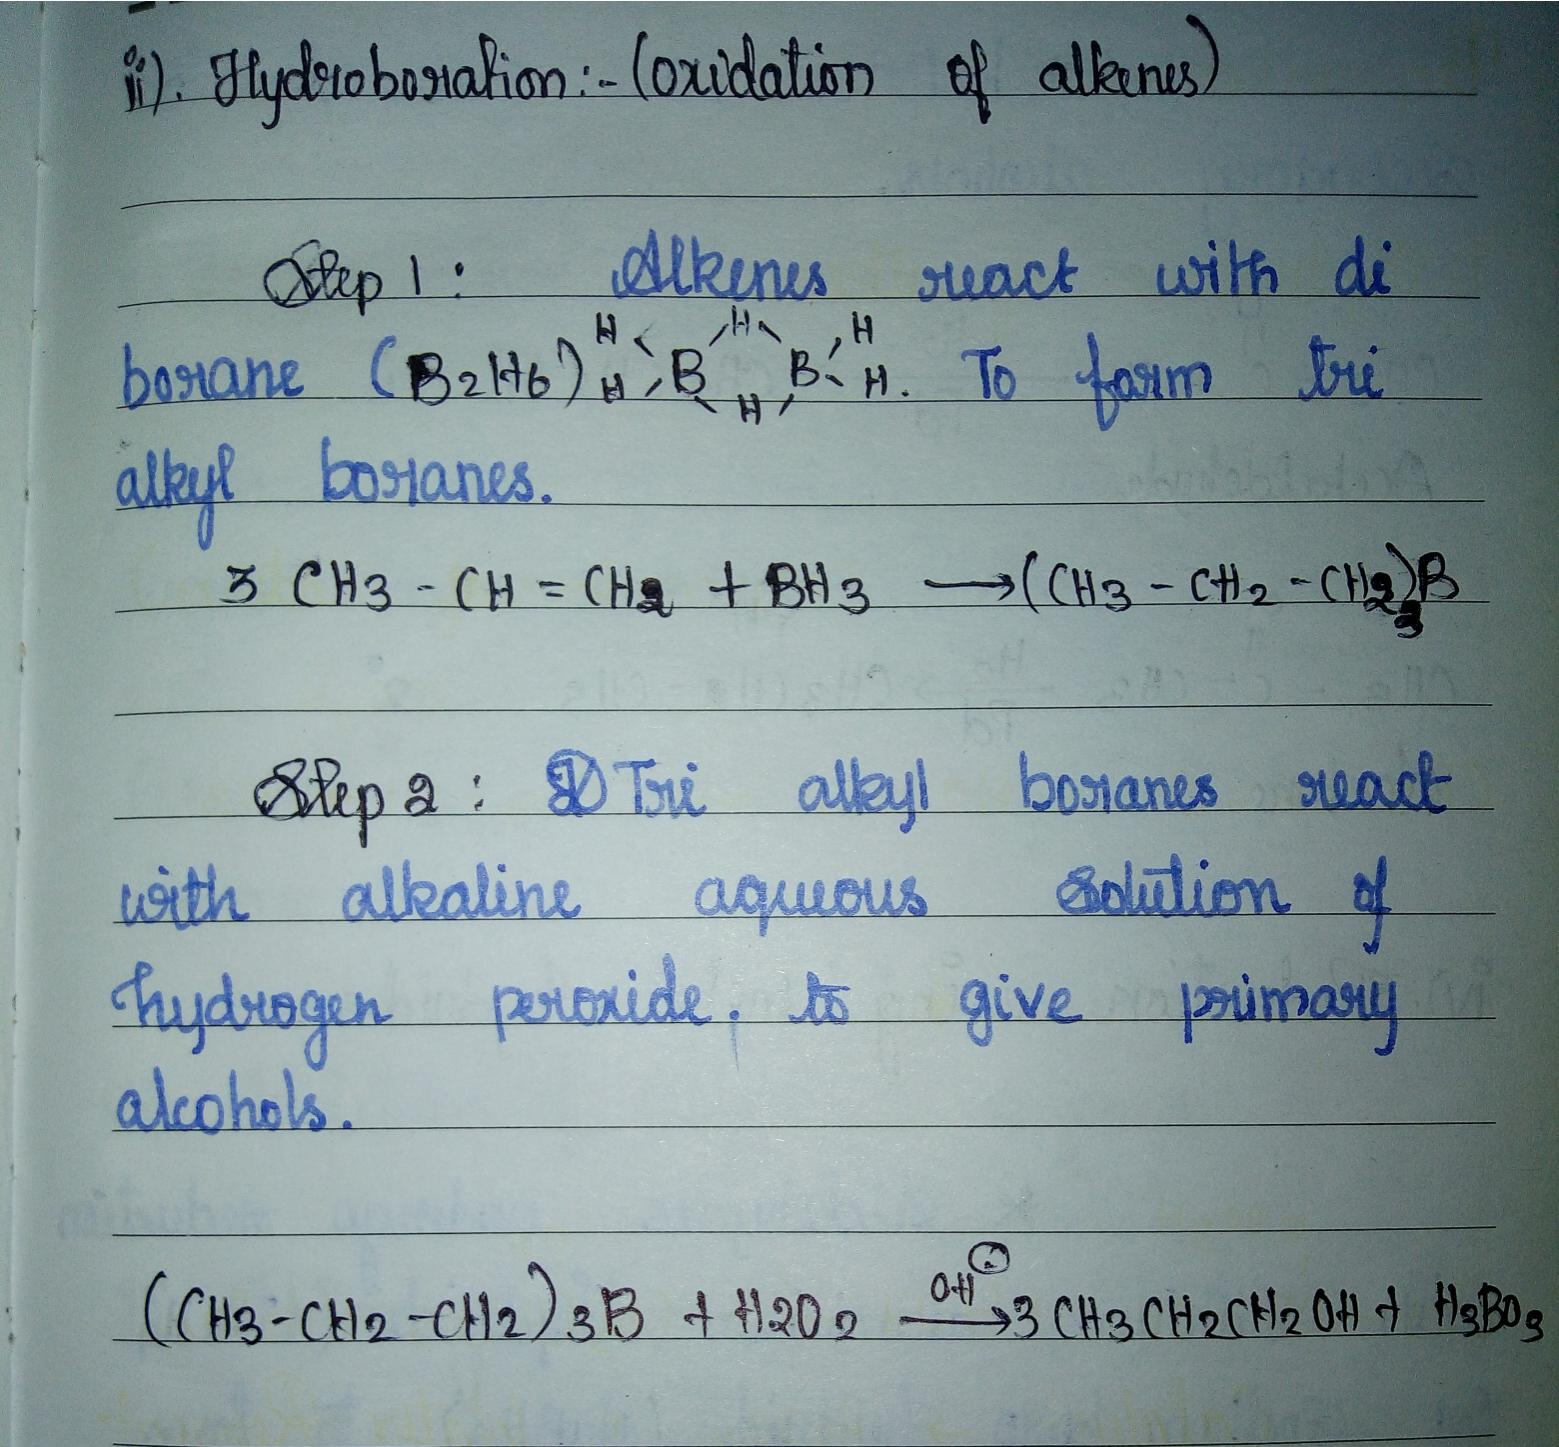 ii). Hydroboration :- (oxidation of alkenes)
Step 1 : Alkenes react with di
borane (B2H6) H H B H H B H H. To form tri
alkyl boranes.
3 CH3 - CH = CH2 + BH3 ⟶ (CH3 - CH2 - CH2)3B
Step 2 : Tri alkyl boranes react
with alkaline aqueous solution of
hydrogen peroxide, to give primary
alcohols.
(CH3-CH2-CH2)3B + H2O2 OH⊖ ⟶ 3 CH3CH2CH2OH + H3BO3